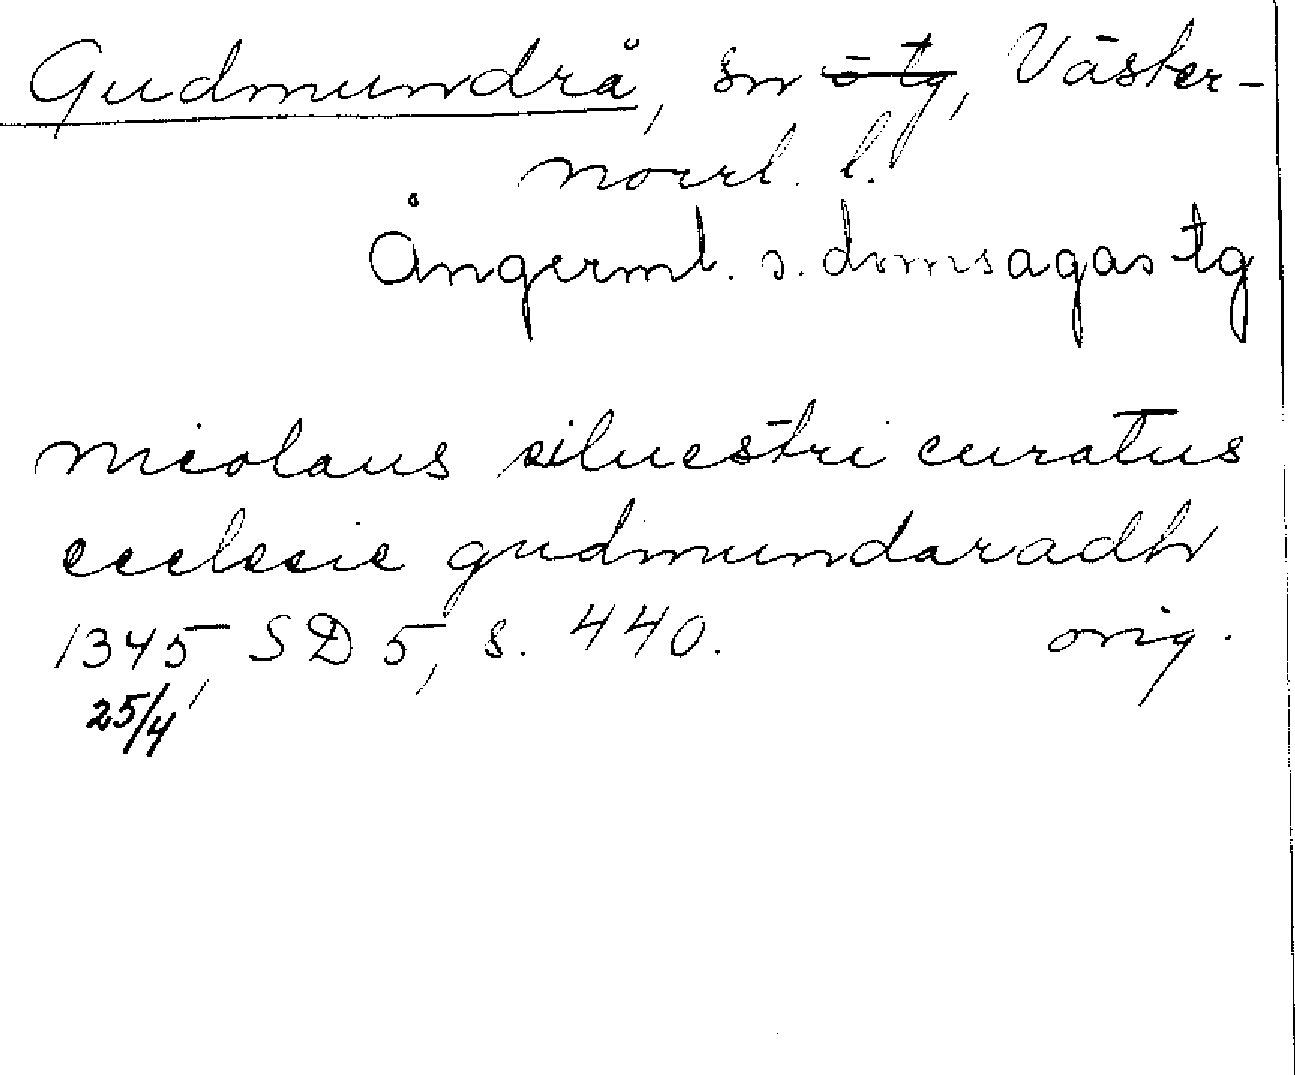 Gudmundrå, sn o tg, Väster-
norrl. l.
Ångerml. s. domsagas tg
nicolaus siluestri curatus
ecclesie gudmundaradh
1345, SD 5, s. 440. orig.
25/4